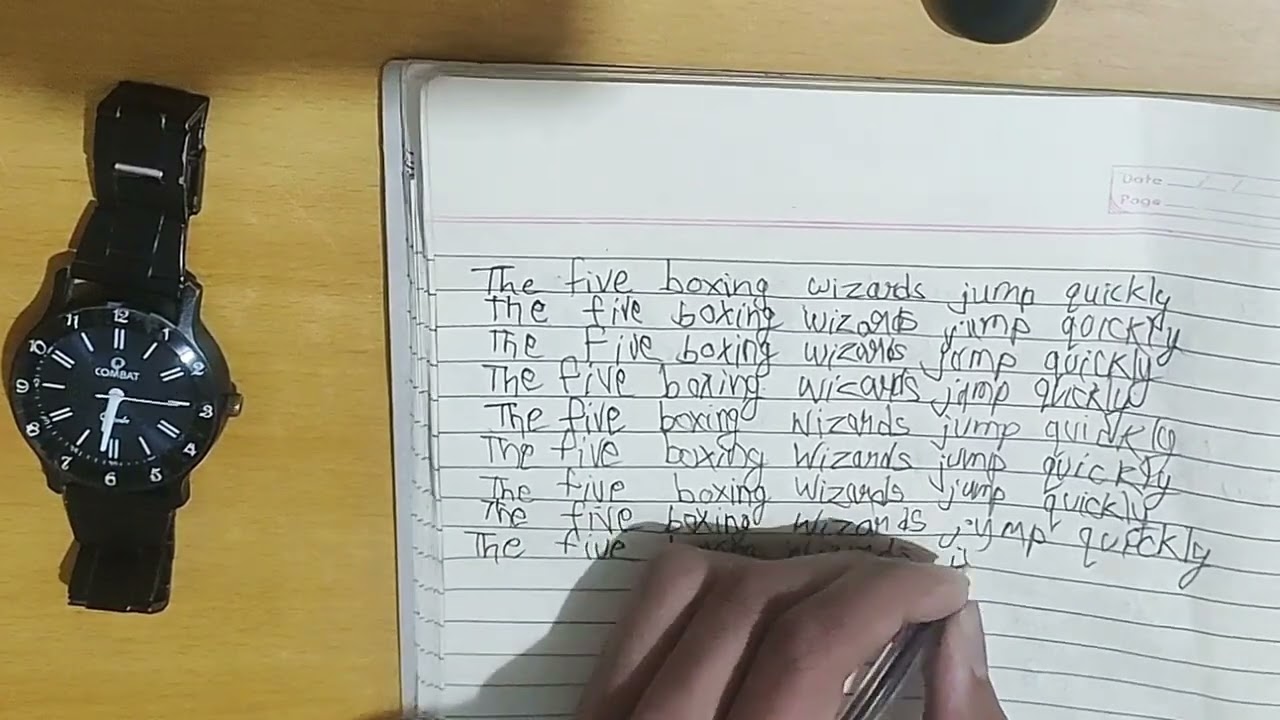 12
1
2
3
4
5
6
7
8
9
10
11
COMBAT
Date
Page
The five boxing wizards jump quickly
The five boxing wizards jump quickly
The five boxing wizards jump quickly
The five boxing wizards jump quickly
The five boxing wizards jump quickly
The five boxing wizards jump quickly
The five boxing wizards jump quickly
The five boxing wizards jump quickly
The five